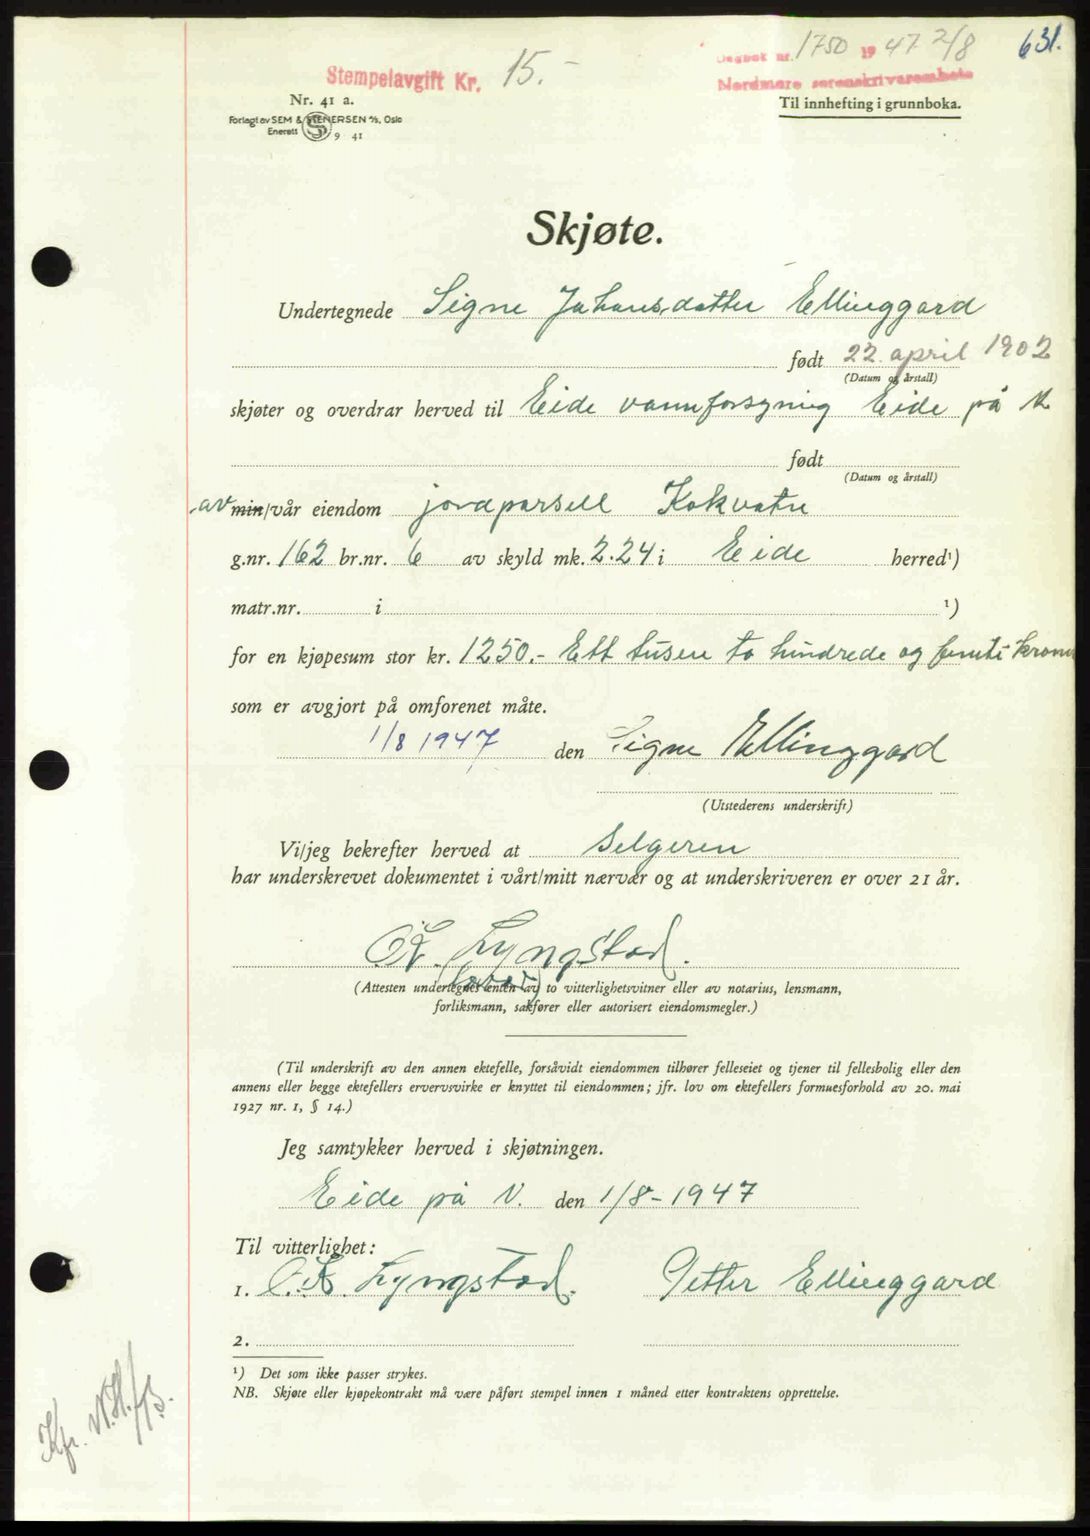 631.
Dagbok nr. 1750 1947 2/8
Stempelavgift Kr. 15.-
Nordmøre sorenskriverembete
Nr. 41 a.
Til innhefting i grunnboka.
Forlagt av SEM & STENERSEN A/S, Oslo
Enerett 9 41
Skjøte.
Undertegnede Signe Johansdatter Ellinggard
født 22. april 1902
(Datum og årstall)
skjøter og overdrar herved til Eide vannforsyning Eide på N
født
(Datum og årstall)
av min/vår eiendom jordparsell Kokvatn
g.nr. 162 br.nr. 6 av skyld mk. 2.24 i Eide herred¹)
matr.nr. i ¹)
for en kjøpesum stor kr. 1250.- Ett tusen to hundrede og femti kroner
som er avgjort på omforenet måte.
1/8 1947 den Signe Ellinggard
(Utstederens underskrift)
Vi/jeg bekrefter herved at selgeren
har underskrevet dokumentet i vårt/mitt nærvær og at underskriveren er over 21 år.
O.K. Lyngstad.
(Attesten undertegnes enten av to vitterlighetsvitner eller av notarius, lensmann,
forliksmann, sakfører eller autorisert eiendomsmegler.)
(Til underskrift av den annen ektefelle, forsåvidt eiendommen tilhører felleseiet og tjener til fellesbolig eller den
annens eller begge ektefellers ervervsvirke er knyttet til eiendommen; jfr. lov om ektefellers formuesforhold av 20. mai
1927 nr. 1, § 14.)
Jeg samtykker herved i skjøtningen.
Eide på N. den 1/8-1947
Til vitterlighet:
1. O.K. Lyngstad. Petter Ellinggard
2.
¹) Det som ikke passer strykes.
NB. Skjøte eller kjøpekontrakt må være påført stempel innen 1 måned etter kontraktens opprettelse.
Kfr. N.H./B.